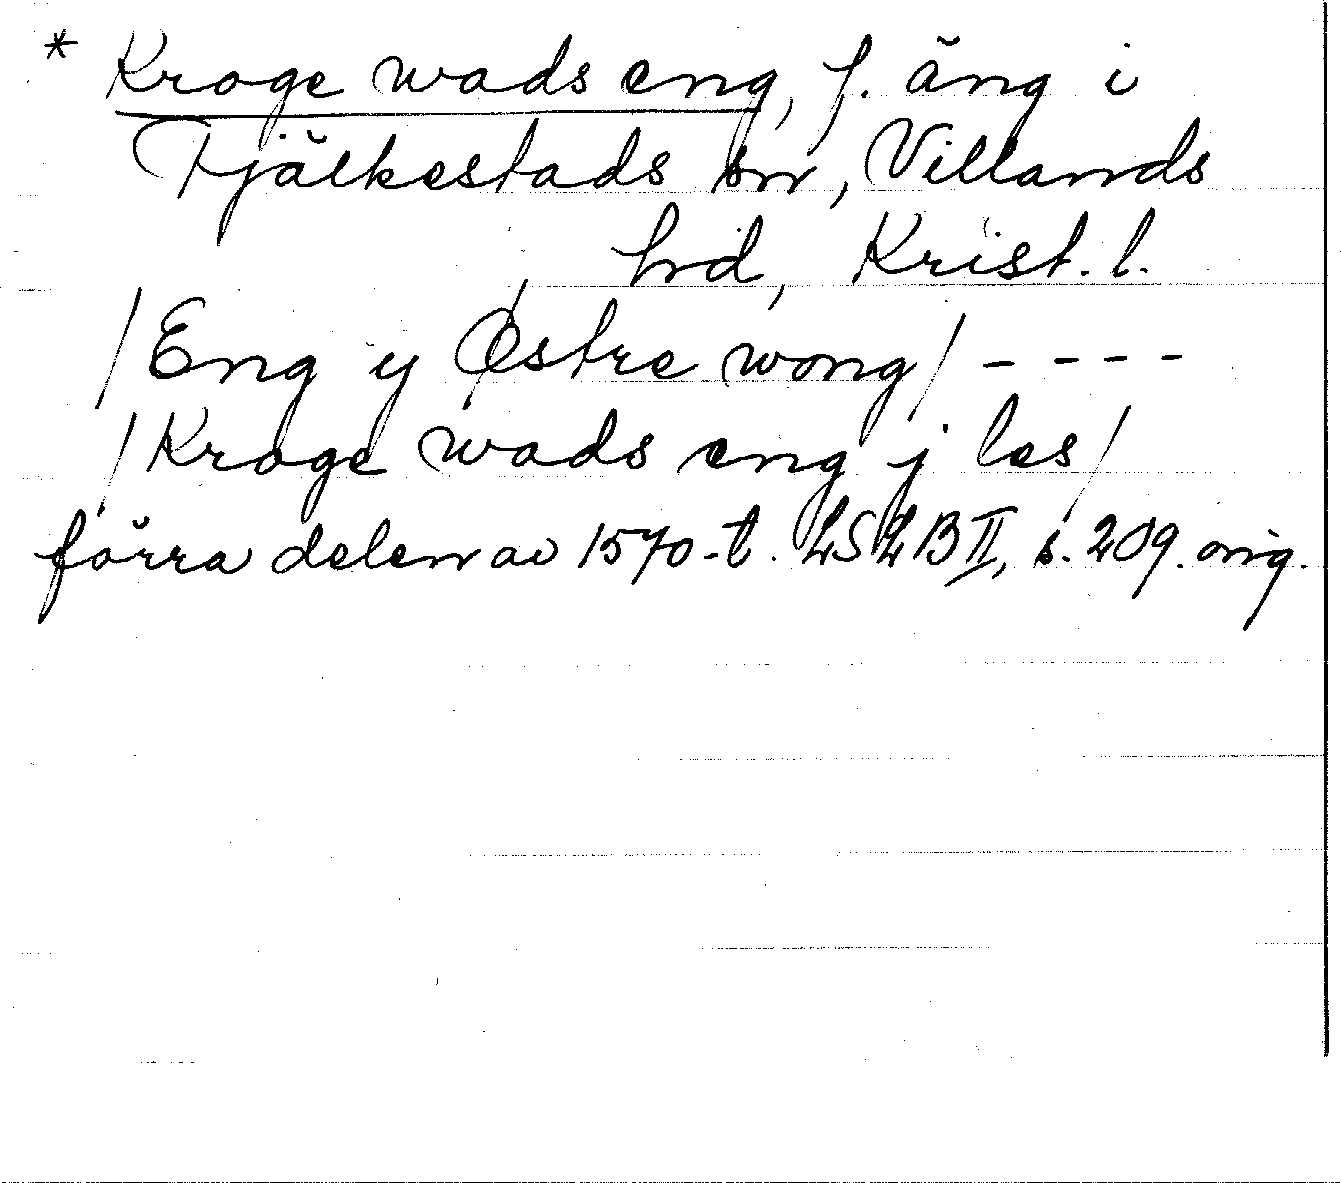 * Kroge wads eng, f. äng i
Tjälkestads sn, Villands
hd, Krist. l.
/Eng y Østre wong/ - - - -
/Kroge wads eng j les/
förra delen av 1570-t. LSLB II, s. 209. orig.